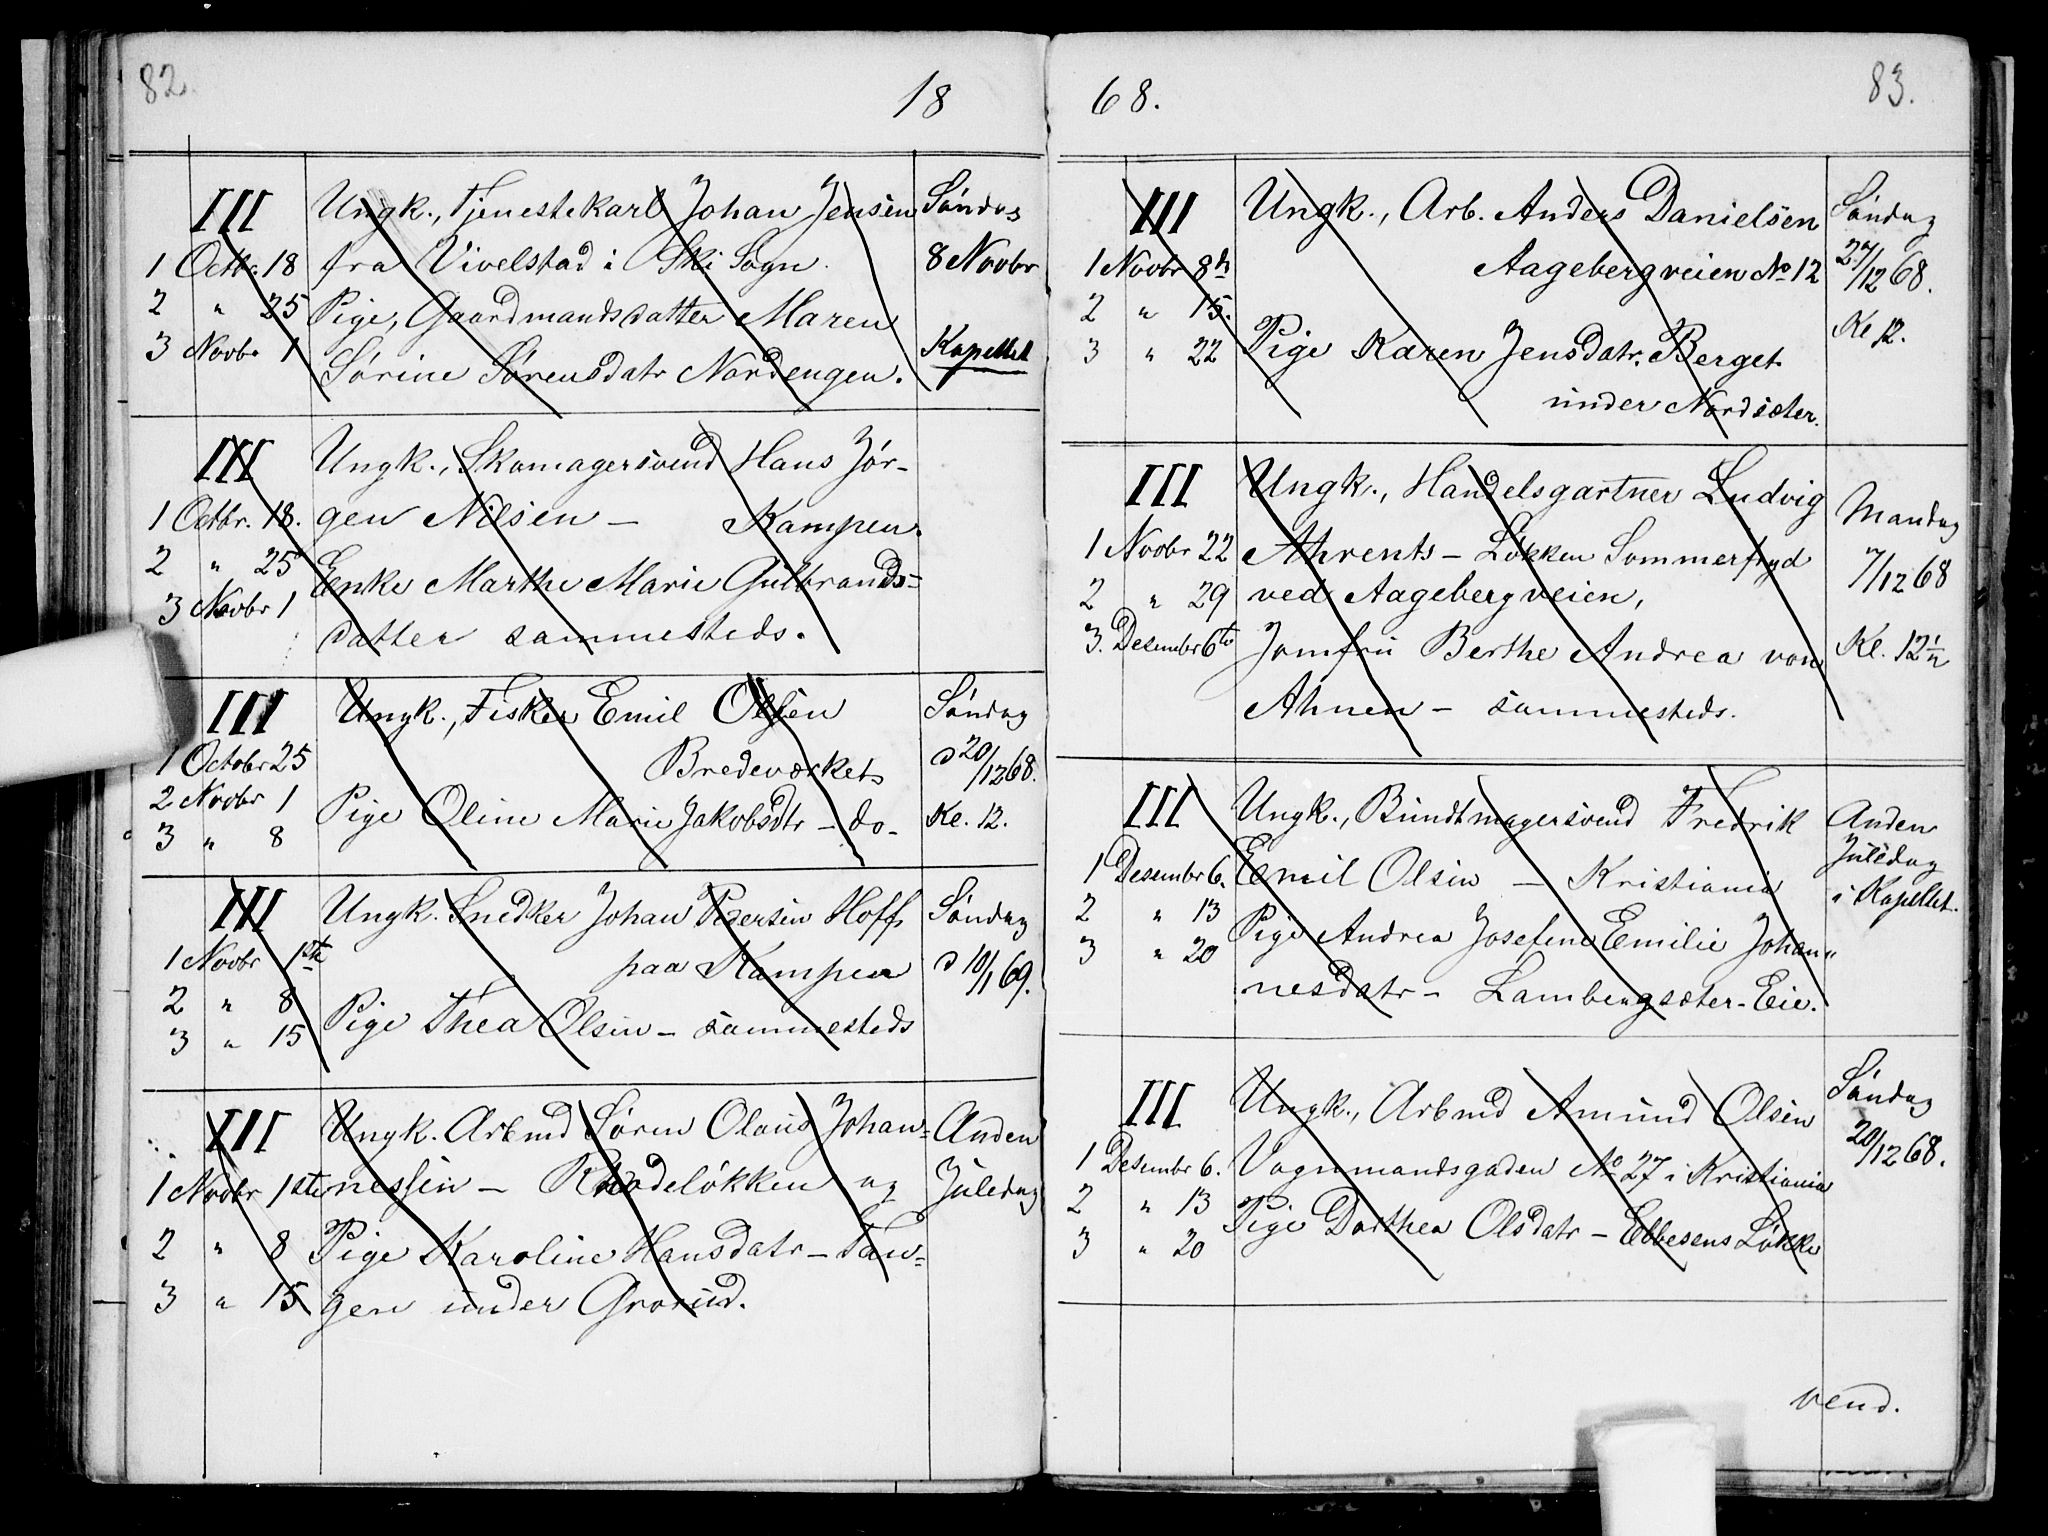 82.
18
III
1 Octbr. 18
2 " 25
3 Novbr 1
Ungk., Tjenestekarl Johan Jensen
fra Vivelstad i Ski Sogn.
Pige, Gaardmandsdatter Maren
Sørine Sørensdatr Nordengen.
Søndag
8 Novbr
Kapellet
III
1 Octbr. 18.
2 " 25
3 Novbr 1
Ungk., Skomagersvend Hans Jør-
gen Nilsen – Kampen.
Enke Marthe Marie Gulbrands=
datter sammesteds.
III
1 Octobr 25
2 Novbr 1
3 " 8
Ungk., Fisker Emil Olsen
Bredeværket
Pige Oline Marie Jakobsdtr – do –
Søndag
d 20/12 68.
Kl. 12.
III
1 Novbr 1ste
2 " 8
3 " 15
Ungk. Snedker Johan Pedersen Hoff
paa Kampen
Pige Thea Olsen – sammesteds
Søndag
d 10/1 69.
III
1 Novbr 1ste
2 " 8
3 " 15
Ungk. Arbmd Søren Olaus Johan=
nessen – Rodeløkken og
Pige Karoline Hansdatr – Tan=
gen under Grorud.
Anden
Juledag
68.
83.
III
1 Novbr 8de
2 " 15.
3 " 22
Ungk., Arb. Anders Danielsen
Aagebergveien No 12
Pige Karen Jensdatr. Berget
under Nordseter.
Søndag
27/12 68.
Kl 12.
III
1 Novbr 22
2 " 29
3. Desember 6te
Ungk., Handelsgartner Ludvig
Ahrents – Løkken Sommerfryd
ved Aagebergveien,
Jomfru Berthe Andrea von
Ahnen – sammesteds.
Mandag
7/12 68
Kl. 12½
III
1 Desember 6.
2 " 13
3 " 20
Ungk., Bundtmagersvend Fredrik
Emil Olsen – Kristiania
Pige Andrea Josefine Emilie Johan"
nesdatr – Lambergseter-Eie.
Anden
Juledag
i Kapellet.
III
1 Desembr 6.
2 " 13
3 " 20
Ungk., Arbmd Amund Olsen
Vognmandsgaden No 27 i Kristiania
Pige Dorthea Olsdatr – Ebbesens Løkke
Søndag
20/12 68.
vend.